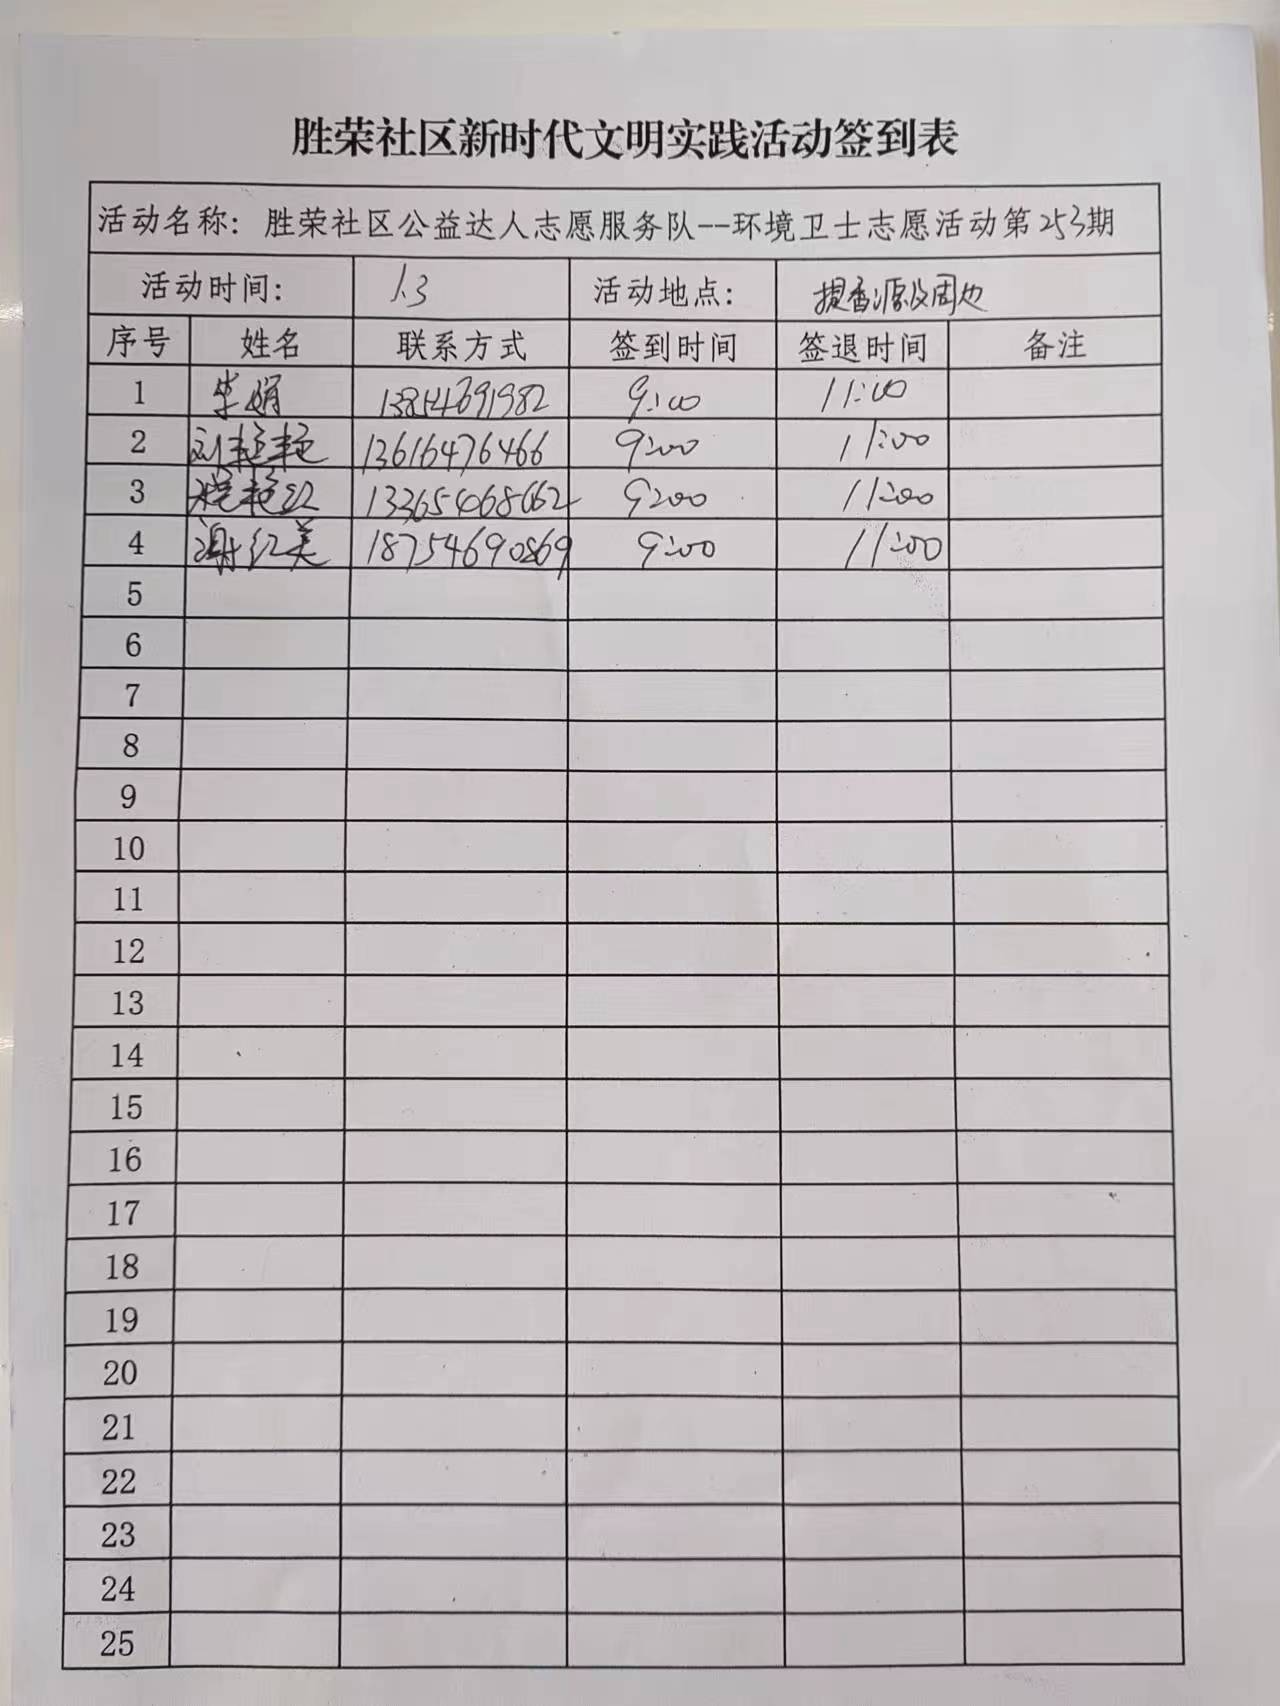 胜荣社区新时代文明实践活动签到表
活动名称: 胜荣社区公益达人志愿服务队--环境卫士志愿活动第253期
活动时间: 1.3 活动地点: 提香源及周边
序号 姓名 联系方式 签到时间 签退时间 备注
1 李娟 13854691982 9:00 11:00
2 刘艳艳 13616476466 9:00 11:00
3 程艳红 13365468662 9:00 11:00
4 谢红美 18754690869 9:00 11:00
5
6
7
8
9
10
11
12
13
14
15
16
17
18
19
20
21
22
23
24
25